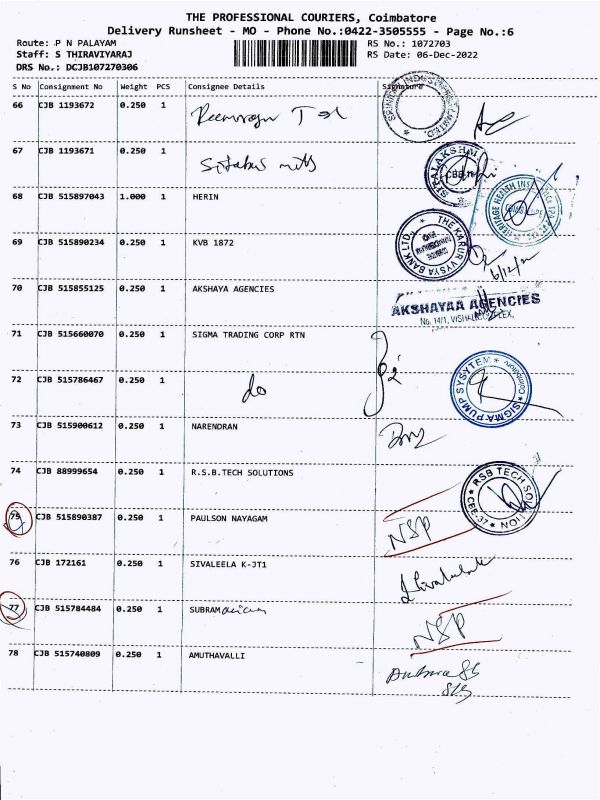 THE PROFESSIONAL COURIERS, Coimbatore
Delivery Runsheet - MO - Phone No.:0422-3505555 - Page No.:6
Route: P N PALAYAM RS No.: 1072703
Staff: S THIRAVIYARAJ RS Date: 06-Dec-2022
DRS No.: DCJB107270306
S No Consignment No Weight PCS Consignee Details Signature
66 CJB 1193672 0.250 1
67 CJB 1193671 0.250 1
68 CJB 515897043 1.000 1 HERIN
69 CJB 515890234 0.250 1 KVB 1872
THE KARUR VYSYA BANK LTD.
6/12/22
70 CJB 515855125 0.250 1 AKSHAYA AGENCIES
AKSHAYAA AGENCIES
71 CJB 515660070 0.250 1 SIGMA TRADING CORP RTN
72 CJB 515786467 0.250 1 do
SIGMA PUMP SYSYTEM * Coimbatore *
73 CJB 515900612 0.250 1 NARENDRAN
74 CJB 88999654 0.250 1 R.S.B.TECH SOLUTIONS
75 CJB 515890387 0.250 1 PAULSON NAYAGAM NSP
76 CJB 172161 0.250 1 SIVALEELA K-JT1
77 CJB 515784484 0.250 1 SUBRAMANIAN NSP
78 CJB 515740809 0.250 1 AMUTHAVALLI